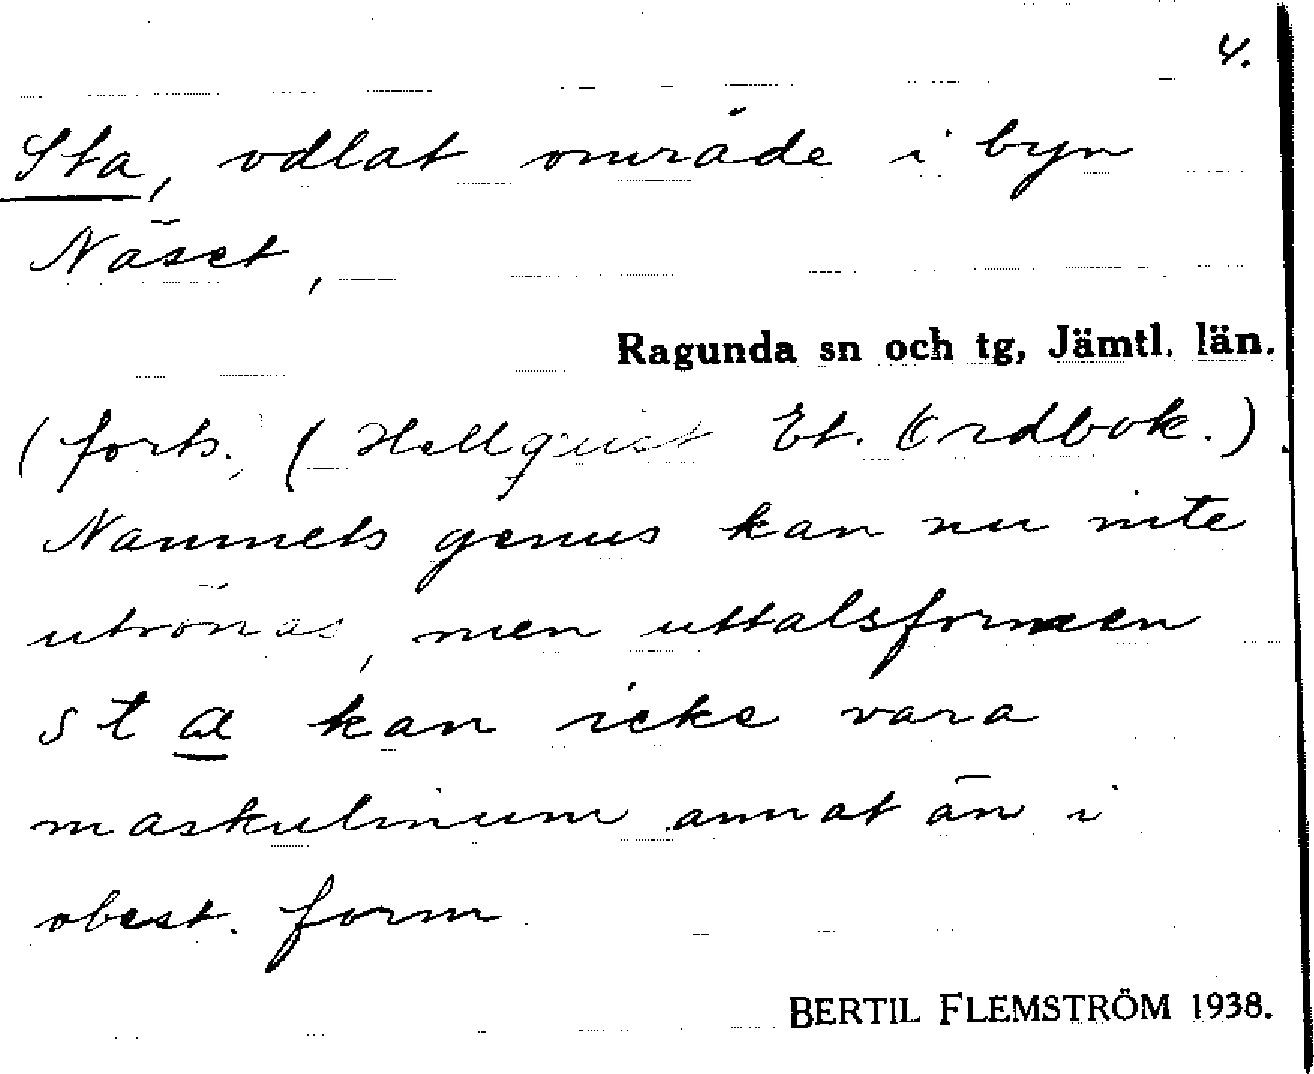 4.
Sta, odlat område i byn
Näset,
Ragunda sn och tg, Jämtl. län.
(forts. (Hellquist Et. Ordbok.)
Namnets genus kan nu inte
utrönas, men uttalsformen
sta kan icke vara
maskulinum annat än i
obest. form.
BERTIL FLEMSTRÖM 1938.